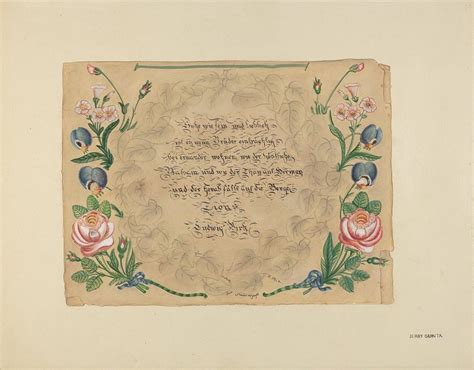 Siehe wie fein und lieblich
ist es wenn Brüder einträchtig
bei einander wohnen wie der köstliche
Balsam und wie der Thau auf Hermon
und der herab fällt auf die Berge
Zions
Ludwig